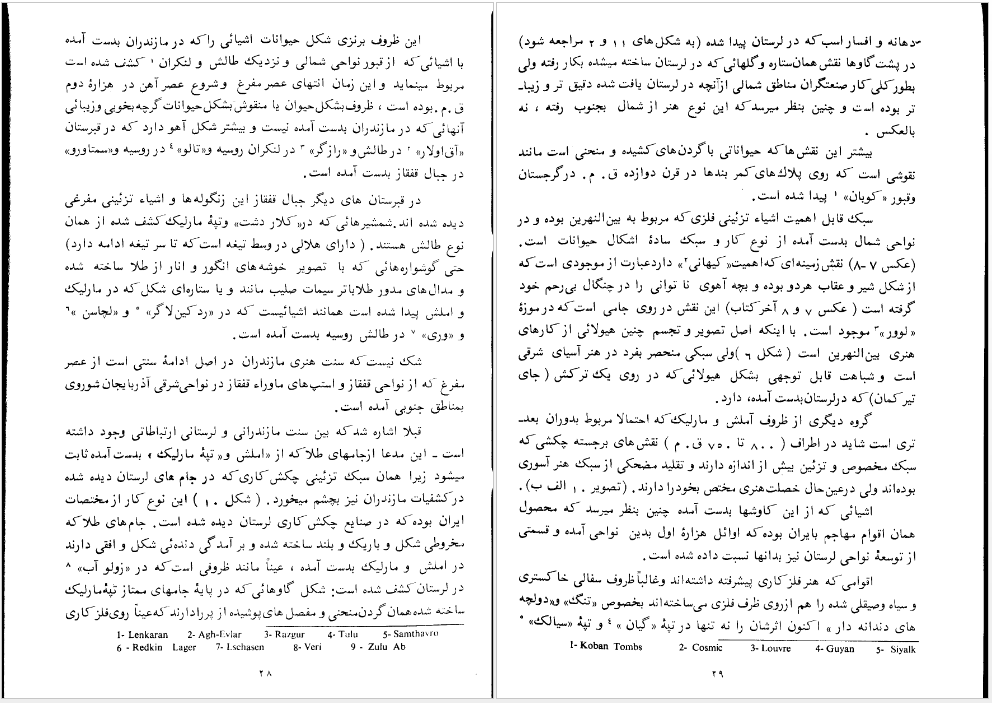 این ظروف برنزی شکل حیوانات اشیائی را که در مازندران بدست آمده
با اشیائی که از قبور نواحی شمالی و نزدیک طالش و لنکران ۱ کشف شده است
مربوط مینماید و این زمان انتهای عصر مفرغ و شروع عصر آهن در هزارهٔ دوم
ق.م. بوده است ، ظروف بشکل حیوان یا منقوش بشکل حیوانات گرچه بخوبی وزیبائی
آنهائی که در مازندران بدست آمده نیست و بیشتر شکل آهو دارد که در قبرستان
«آق اولار» ۲ در طالش و «رازگر» ۳ در لنکران روسیه و «تالو» ۴ در روسیه و «سمتاورو»
در جبال قفقاز بدست آمده است.
در قبرستان های دیگر جبال قفقاز این زنگوله‌ها و اشیاء تزئینی مفرغی
دیده شده اند. شمشیرهائی که در «کلار دشت» وتپهٔ مارلیک کشف شده از همان
نوع طالش هستند. ( دارای هلالی در وسط تیغه است که تا سر تیغه ادامه دارد)
حتی گوشواره‌هائی که با تصویر خوشه‌های انگور و انار از طلا ساخته شده
و مدال‌های مدور طلا باتر سیمات صلیب مانند و یا ستاره‌ای شکل که در مارلیک
و املش پیدا شده است همانند اشیائیست که در «رد کین لاگر» ۵ و «لچاسن» ۶
و «وری» ۷ در طالش روسیه بدست آمده است.
شک نیست که سنت هنری مازندران در اصل ادامهٔ سنتی است از عصر
مفرغ که از نواحی قفقاز و استپ‌های ماوراء قفقاز در نواحی شرقی آذربایجان شوروی
بمناطق جنوبی آمده است.
قبلا اشاره شد که بین سنت مازندرانی و لرستانی ارتباطاتی وجود داشته
است ـ این مدعا از جامهای طلا که از «املش و «تپهٔ مارلیک » بدست آمده ثابت
میشود زیرا همان سبک تزئینی چکش کاری که در جام های لرستان دیده شده
در کشفیات مازندران نیز بچشم میخورد. ( شکل ۱۰ ) این نوع کار از مختصات
ایران بوده که در صنایع چکش کاری لرستان دیده شده است. جام‌های طلا که
مخروطی شکل و باریک و بلند ساخته شده و بر آمدگی دنده‌ئی شکل و افقی دارند
در املش و مارلیک بدست آمده ، عیناً مانند ظروفی است که در «زولو آب» ۸
در لرستان کشف شده است: شکل گاوهائی که در پایهٔ جامهای ممتاز تپهٔ مارلیک
ساخته شده همان گردن منحنی و مفصل های پوشیده از پر را دارند که عیناً روی فلز کاری
1- Lenkaran 2- Agh-Evlar 3- Razgur 4- Talu 5- Samthavro
6 - Redkin Lager 7- Lschasen 8- Veri 9 - Zulu Ab
۲۸
-دهانه و افسار اسب که در لرستان پیدا شده (به شکل‌های ۱۱ و ۲ مراجعه شود)
در پشت گاوها نقش همان ستاره و گلهائی که در لرستان ساخته میشده بکار رفته ولی
بطور کلی کار صنعتگران مناطق شمالی از آنچه در لرستان یافت شده دقیق تر و زیبا-
تر بوده است و چنین بنظر میرسد که این نوع هنر از شمال بجنوب رفته ، نه
بالعکس .
بیشتر این نقش‌ها که حیواناتی با گردن‌های کشیده و منحنی است مانند
نقوشی است که روی پلاک های کمر بندها در قرن دوازده ق. م. در گرجستان
وقبور « کوبان» ۱ پیدا شده است.
سبک قابل اهمیت اشیاء تزئینی فلزی که مربوط به بین‌النهرین بوده و در
نواحی شمال بدست آمده از نوع کار و سبک سادهٔ اشکال حیوانات است.
(عکس ۷-۸) نقش زمینه‌ای که اهمیت «کیهانی۲» دارد عبارت از موجودی است که
از شکل شیر و عقاب هردو بوده و بچه آهوی نا توانی را در چنگال بی‌رحم خود
گرفته است ( عکس ۷ و ۸ آخر کتاب) این نقش در روی جامی است که در موزهٔ
«لوور»۳ موجود است. با اینکه اصل تصویر و تجسم چنین هیولائی از کارهای
هنری بین‌النهرین است ( شکل ۶ )ولی سبکی منحصر بفرد در هنر آسیای شرقی
است و شباهت قابل توجهی بشکل هیولائی که در روی یک ترکش ( جای
تیر کمان) که در لرستان بدست آمده، دارد.
گروه دیگری از ظروف آملش و مارلیک که احتمالا مربوط بدوران بعد-
تری است شاید در اطراف ( ۸۰۰ تا ۷۵۰ ق. م ) نقش های برجسته چکشی که
سبک مخصوص و تزئین بیش از اندازه دارند و تقلید مضحکی از سبک هنر آسوری
بوده‌اند ولی درعین حال خصلت هنری مختص بخود را دارند. (تصویر ۱۰ الف ب).
اشیائی که از این کاوشها بدست آمده چنین بنظر میرسد که محصول
همان اقوام مهاجم بایران بوده که اوائل هزارهٔ اول بدین نواحی آمده و قسمتی
از توسعهٔ نواحی لرستان نیز بدانها نسبت داده شده است.
اقوامی که هنر فلز کاری پیشرفته داشته‌اند وغالباً ظروف سفالی خاکستری
و سیاه وصیقلی شده را هم از روی ظرف فلزی می‌ساخته‌اند بخصوص «تنگ» و«دولچه
های دندانه دار » اکنون اثرشان را نه تنها در تپهٔ « گیان » ۴ و تپهٔ «سیالک» ۵
1- Koban Tombs 2- Cosmic 3- Louvre 4- Guyan 5- Siyalk
۲۹